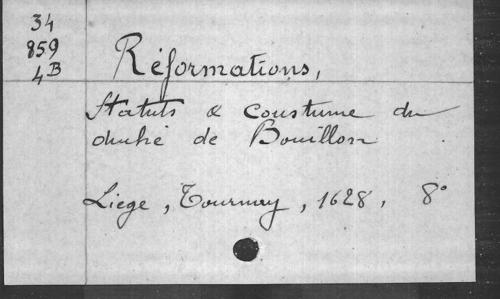 34
859
4B
Réformations,
Statuts & coustume du
duché de Bouillon
Liege, Tournay, 1628, 8°